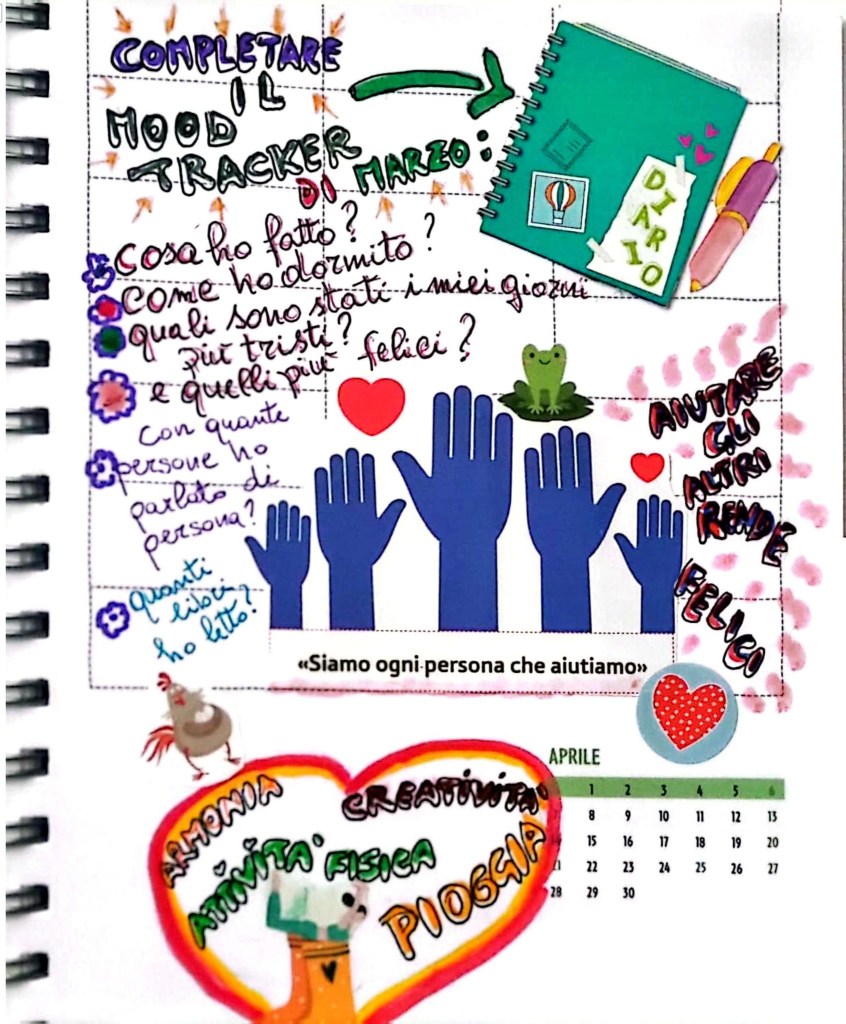 COMPLETARE
IL
MOOD
TRACKER
DI MARZO:
DIARIO
Cosa ho fatto?
Come ho dormito?
quali sono stati i miei giorni
più tristi?
e quelli più felici?
Con quante
persone ho
parlato di
persona?
quanti
libri
ho letto?
AIUTARE
GLI
ALTRI
RENDE
FELICI
«Siamo ogni persona che aiutiamo»
ARMONIA
CREATIVITA'
ATTIVITA' FISICA
PIOGGIA
APRILE
1 2 3 4 5 6
8 9 10 11 12 13
15 16 17 18 19 20
22 23 24 25 26 27
28 29 30